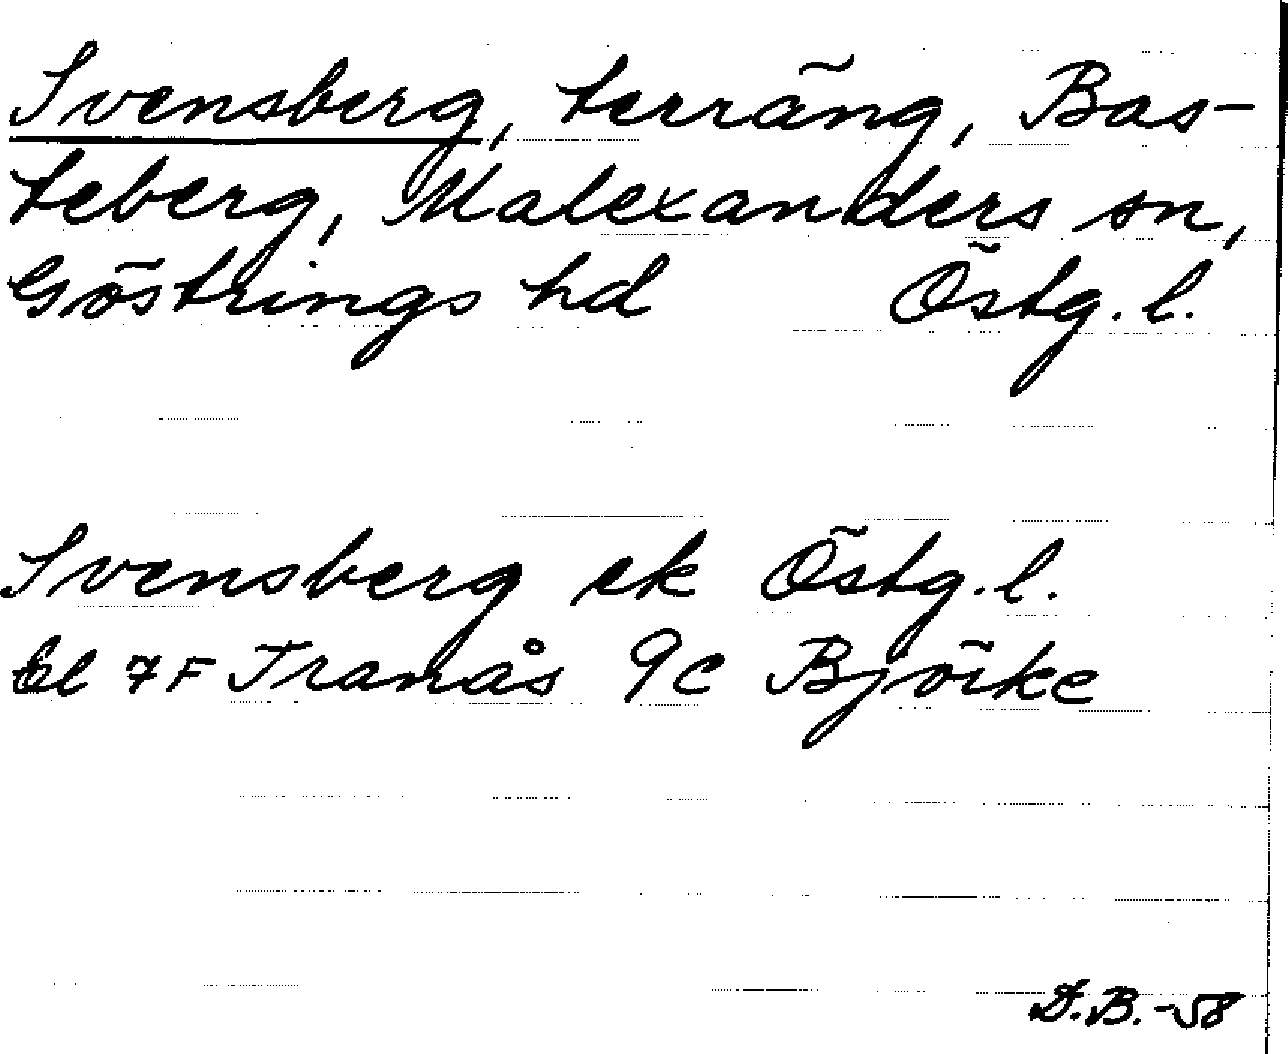 Svensberg, terräng, Bas-
teberg, Malexanders sn,
Göstrings hd Östg. l.
Svensberg ek Östg. l.
bl 7F Tranås 9c Björke
D.B.-58